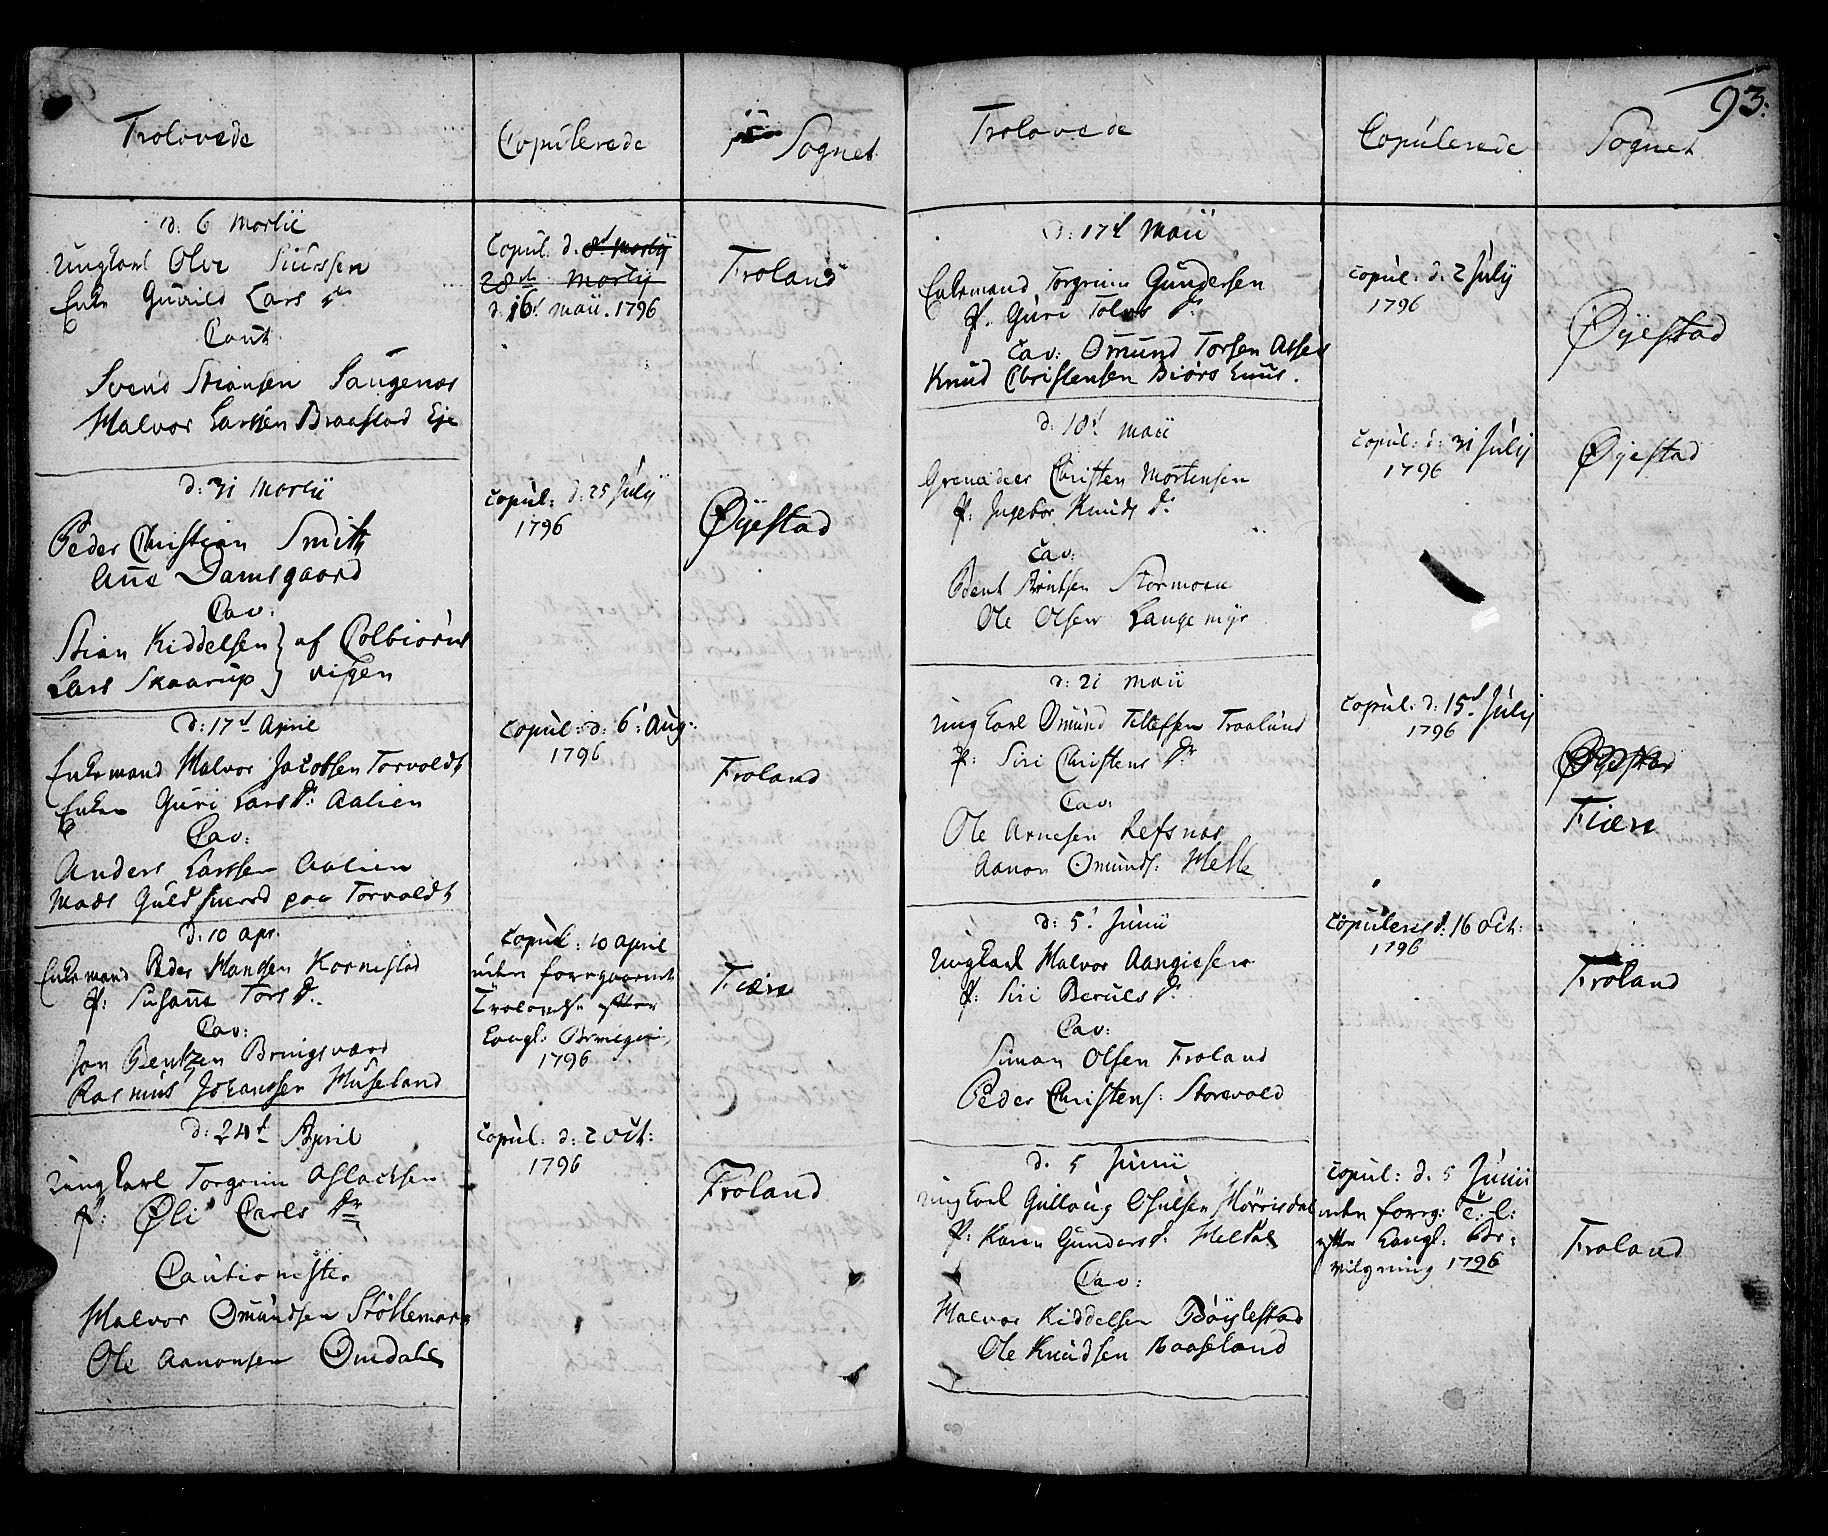 Trolovede
Copulerede
Sognet
d: 6 Martii
Ungkarl Olve Siurssen
Enke Gunild Lars dr
Caut:
Svend Stiansen Saugenæs
Halvor Larssen Braastad Eje
Copul: d. 8d Martij
28de Martij
d: 16d Maii. 1796
Froland
d: 31 Martii
Peder Christian Smith
Anne Damsgaard
Cav:
Stian Kiddelsen } af Colbiørns
Lars Skaarup } vigen
Copul: d: 25 Julij
1796
Øyestad
d: 17d April
Enkemand Halvor Jacobsen Torvoldt
Enken Guri Lars dr. Aalien
Cav:
Anders Larssen Aalien
Mads Guldsmed paa Torvoldt
Copul: d: 6' Aug:
1796
Froland
d: 10 apr.
Enkemand Peder Hanssen Kornestad
P: Susanne Tors dr.
Cav:
Jon Bentzen Bringsværd
Rasmus Johanssen Huseland
Copul: 10 april
uden foregaaende
Trolovelse efter
Kongl: Bevilgni:
1796
Fiære
d: 24d April
Ungkarl Torgrim Aslacksen
P: Øli Carls dr
Cautionister
Halvor Omundsen Støllemark
Ole Aanonsen Omdahl
Copul: d: 2 Oct:
1796
Froland
93:
Trolovede
Copulerede
Sognet
d: 17d Maii
Enkemand Torgrim Gundersen
P. Guri Tolvs dr.
Cav: Omund Torsen Assev
Knud Christensen Biors
Copul: d: 2 Julij
1796
Øyestad
d: 18d Maii
Grenadeer Christen Mortensen
P: Ingebor Knuds dr.
Cav:
Bent Bentsen Stormoen
Ole Olsen Langemyr
Copul: d: 31 Julij
1796
Øyestad
d: 21 Maii
Ungkarl Omund Tellefsen Traalund
P: Siri Christens dr.
Cav:
Ole Arnesen Refsnæs
Aanon Omunds: Helle
Copul: d: 15d Julij
1796
Øyestad
Fiære
d: 5' Junii
Ungkarl Halvor Aangiesen
P: Siri Beruls dr.
Cav:
Simon Olsen Froland
Peder Christens: Storevold
Copuleres d. 16 Oct:
1796
Froland
d. 5 Junii
Ungkarl Gulloug Osulsen Mørrisdal
P: Karen Gunders dr. Heldal
Cav:
Halvor Kiddelsen Bøylestad
Ole Knudsen Baaseland
Copul: d. 5 Junii
uden foreg: T: l:
efter Kongl: Be-
vilgning 1796
Froland